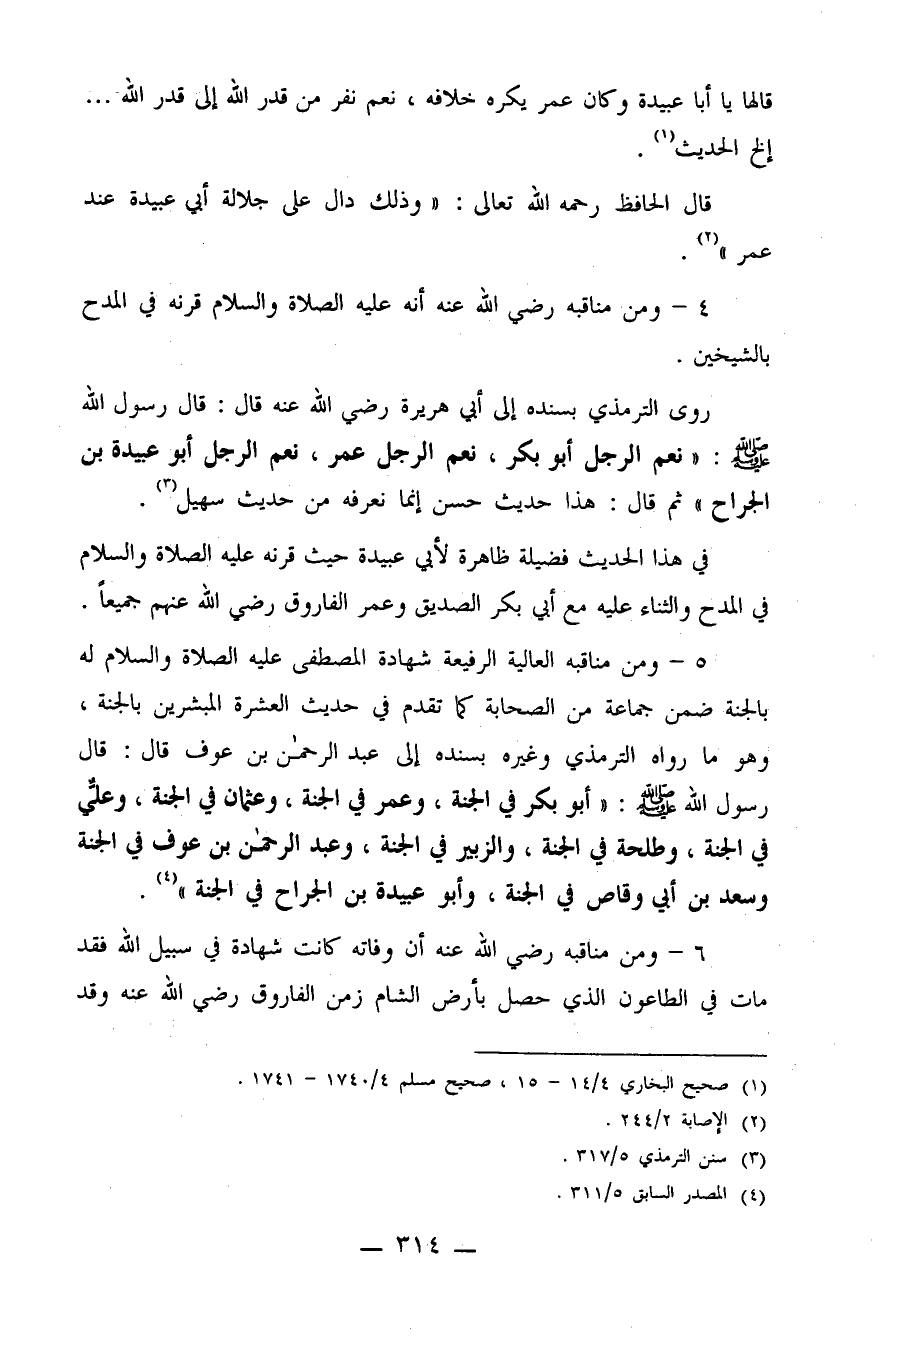 قالها يا أبا عبيدة وكان عمر يكره خلافه ، نعم نفر من قدر الله إلى قدر الله ...
إلخ الحديث(١) .
قال الحافظ رحمه الله تعالى : « وذلك دال على جلالة أبي عبيدة عند
عمر »(٢) .
٤ – ومن مناقبه رضي الله عنه أنه عليه الصلاة والسلام قرنه في المدح
بالشيخين .
روى الترمذي بسنده إلى أبي هريرة رضي الله عنه قال : قال رسول الله
ﷺ : « نعم الرجل أبو بكر ، نعم الرجل عمر ، نعم الرجل أبو عبيدة بن
الجراح » ثم قال : هذا حديث حسن إنما نعرفه من حديث سهيل(٣) .
في هذا الحديث فضيلة ظاهرة لأبي عبيدة حيث قرنه عليه الصلاة والسلام
في المدح والثناء عليه مع أبي بكر الصديق وعمر الفاروق رضي الله عنهم جميعاً .
٥ – ومن مناقبه العالية الرفيعة شهادة المصطفى عليه الصلاة والسلام له
بالجنة ضمن جماعة من الصحابة كما تقدم في حديث العشرة المبشرين بالجنة ،
وهو ما رواه الترمذي وغيره بسنده إلى عبد الرحمٰن بن عوف قال : قال
رسول الله ﷺ : « أبو بكر في الجنة ، وعمر في الجنة ، وعثمان في الجنة ، وعليٌّ
في الجنة ، وطلحة في الجنة ، والزبير في الجنة ، وعبد الرحمٰن بن عوف في الجنة
وسعد بن أبي وقاص في الجنة ، وأبو عبيدة بن الجراح في الجنة »(٤) .
٦ – ومن مناقبه رضي الله عنه أن وفاته كانت شهادة في سبيل الله فقد
مات في الطاعون الذي حصل بأرض الشام زمن الفاروق رضي الله عنه وقد
(١) صحيح البخاري ١٤/٤ – ١٥ ، صحيح مسلم ١٧٤٠/٤ – ١٧٤١ .
(٢) الإصابة ٢٤٤/٢ .
(٣) سنن الترمذي ٣١٧/٥ .
(٤) المصدر السابق ٣١١/٥ .
— ٣١٤ —